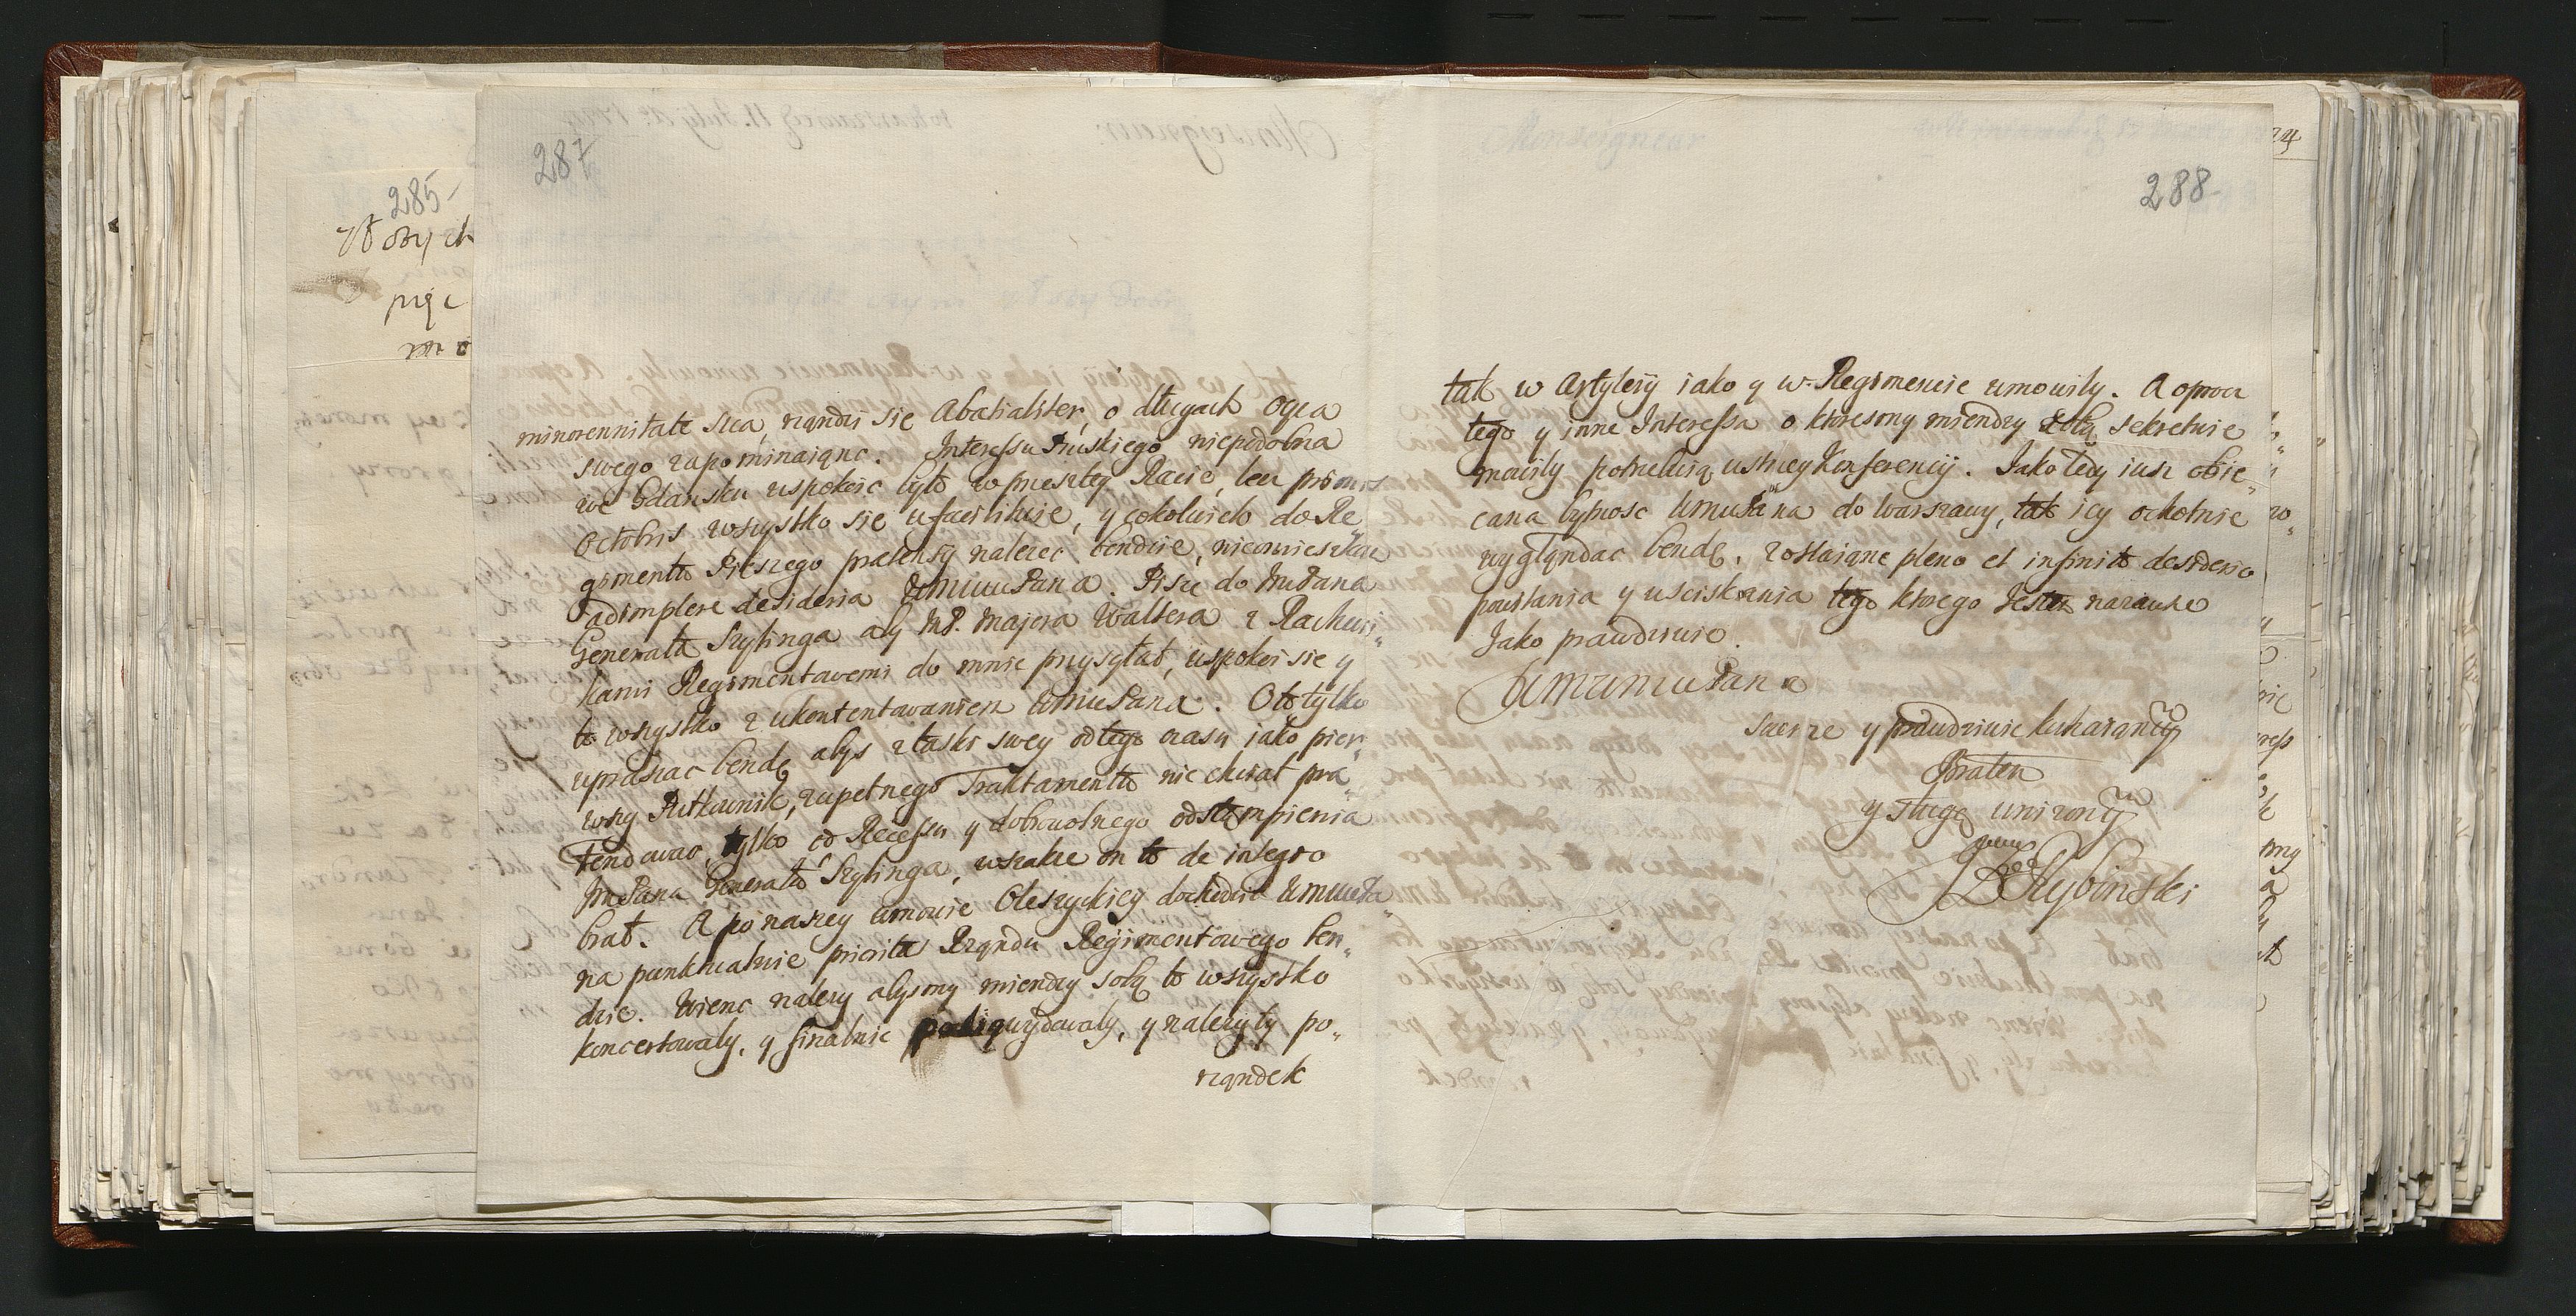 285
287
minorennitate sua, rządzi się Abatialiter, o długach oyca
swego zapominaiąnc. Interessu Pruskiego niepodobna
we Gdansku uspokoic było w przeszłey Racie, lecz pro mens
Octobris wszystko się ufacilituie, y cokolwiek do Re„
gimentu Pieszego pratensÿ nalezec bendzie, nieomieszkam
adimplere desideria WmmPana. Pisze do ImPana
Generała Szylinga aby IMP. Majora Waltera z Rachun„
kami Regimentowemi do mnie przysyłał, uspokoi się y
to wszystko z ukontentowaniem WmmPana. Oto tylko
upraszac bendę abys z łaski swey od tego czasu iako pier„
wszy Putkownik, zupełnego Traktamentu nie chciał prae„
tendowac, tylko od Recessu y dobrowolnego odstąmpienia
ImPana Generała Szylinga, wszakze on to de integro
brał. A po naszey umowie Oleszyckiey dochodzic WmmPa„
na punktualnie prioritas Rząndu Regimentowego ben„
dzie. Wienc nalezy abysmy miendzy sobą to wszystko
koncertowaly, y finalnie poliqwydowaly, y nalezyty po„
rząndek
288
tak w Artyleryi iako y w Regimencie umowily. A oprocz
tego y inne Interessa o ktoresmy miendzy sobą sekretnie
mowily potrzebuią ustney Konferencÿ. Jako tedy iusz obie„
cana bytnosc WmmPana do Warszawy, tak iey ochotnie
wyglądac bendę, zostaiąnc pleno et infinito desiderio
powitania y usciskania tego ktorego Jestem nazawsze
Jako prawdziwie.
WmmmmPana
szczerze y prawdziwie kochaiąncÿm
Bratem
y sługą unizonÿm
Rybinski